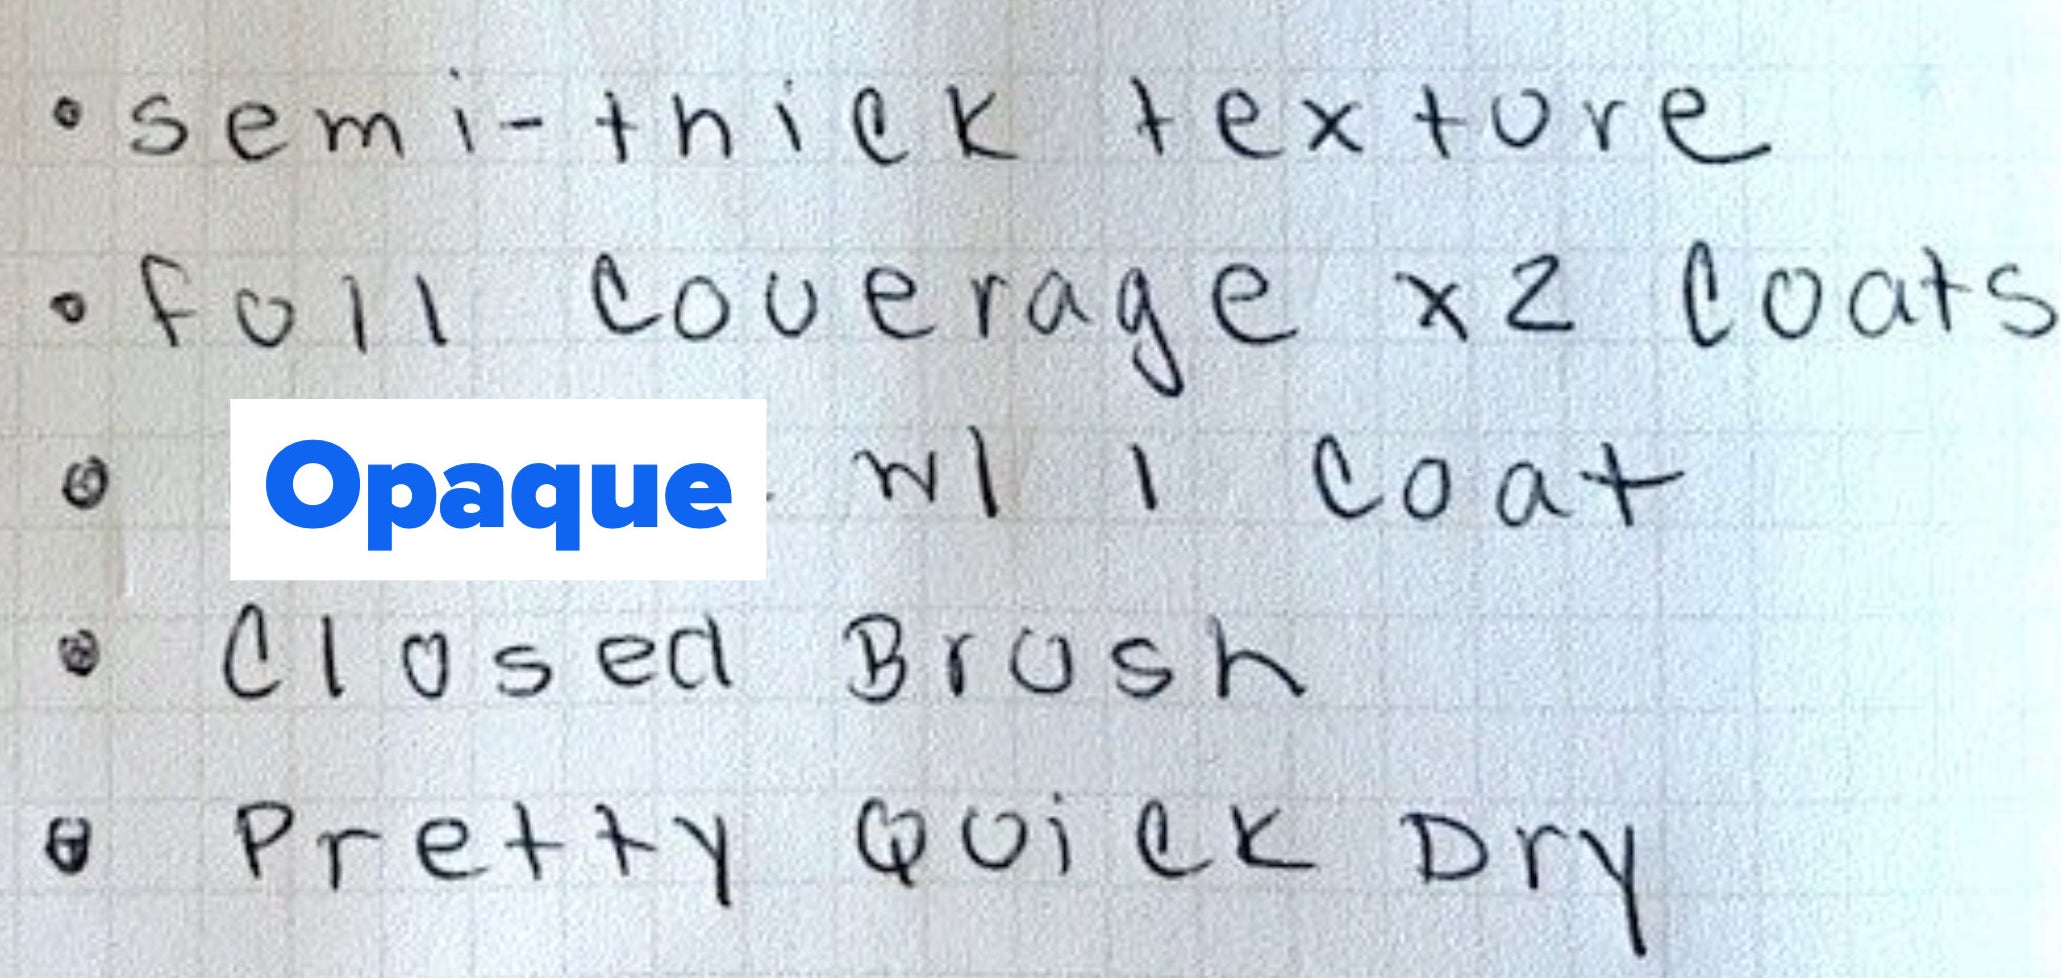 • semi-thick texture
• full coverage x2 coats
• Opaque w/ 1 coat
• Closed Brush
• Pretty Quick Dry